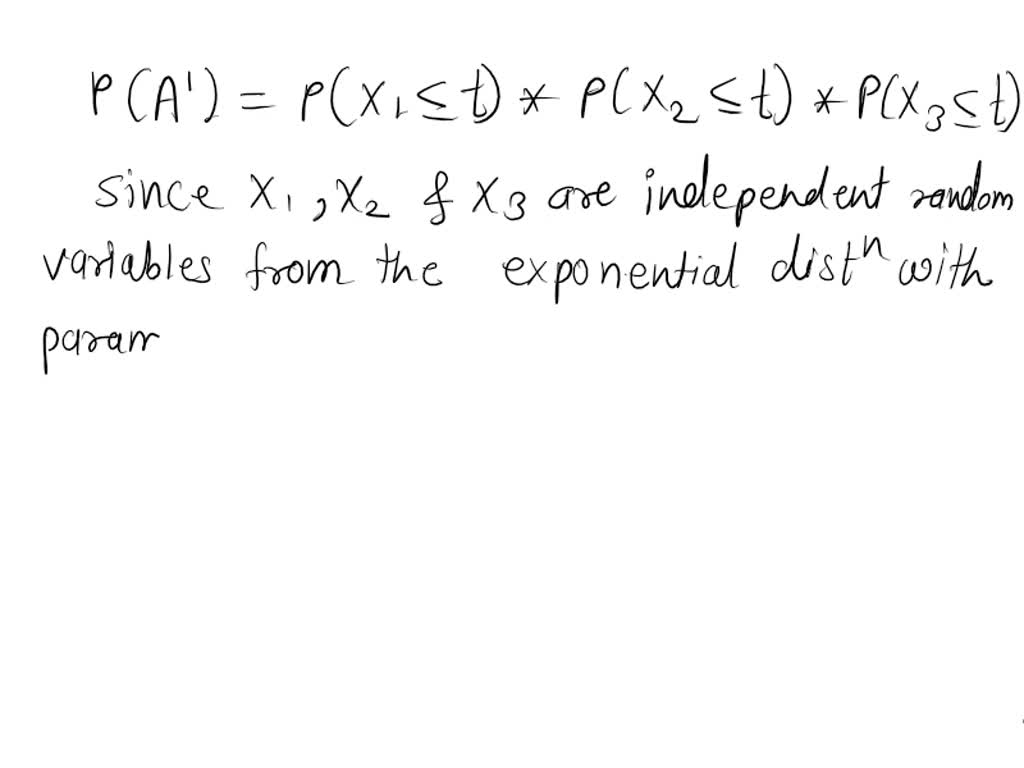 P(A') = P(X₁ ≤ t) * P(X₂ ≤ t) * P(X₃ ≤ t)
since X₁, X₂ & X₃ are independent random
variables from the exponential distⁿ with
param